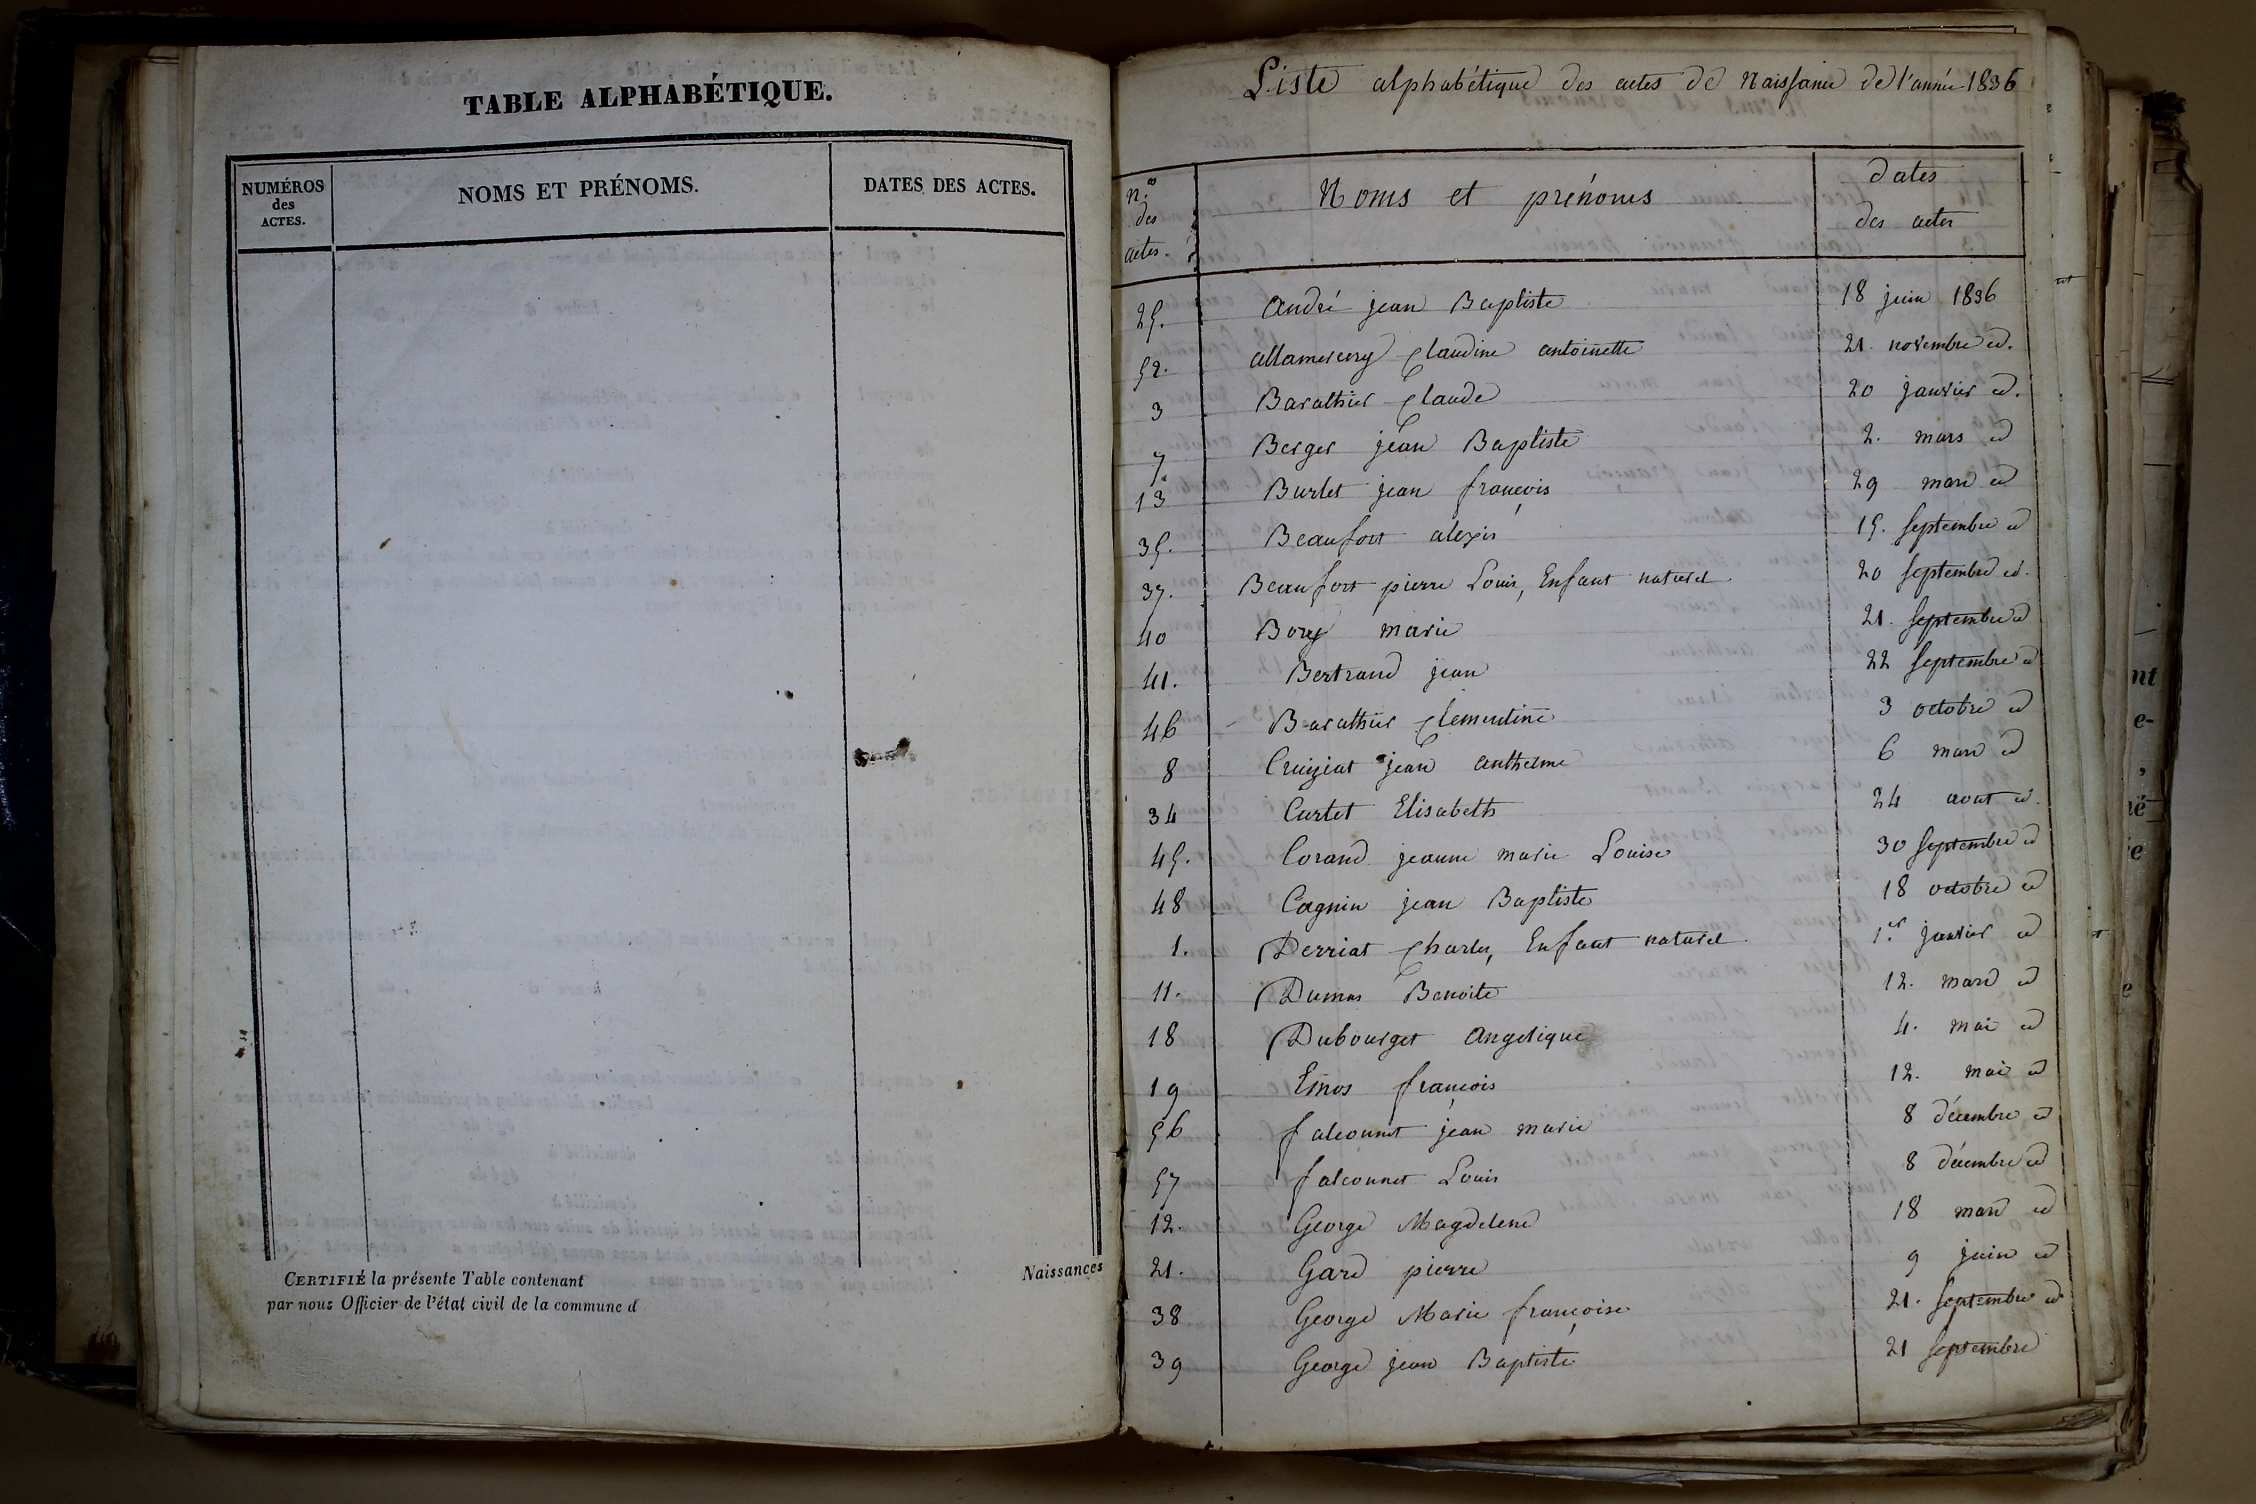 TABLE ALPHABÉTIQUE.
NUMÉROS
des
ACTES.
NOMS ET PRÉNOMS.
DATES DES ACTES.
CERTIFIÉ la présente Table contenant
par nous Officier de l'état civil de la commune d
Naissances
Liste alphabétique des actes de Naissance de l'année 1836
n.os
des
actes.
Noms et prénoms
dates
des actes
25. andré jean Baptiste 18 juin 1836
52. allamercery Claudine antoinette 21. novembre id.
3 Barathier Claude 20 janvier id.
7 Berger jean Baptiste 2. mars id
13 Burlet jean françois 29 mars id
35. Beaufort alexis 15. septembre id
37. Beaufort pierre Louis, Enfant naturel 20 septembre id.
40 Borey marie 21. septembre id
41. Bertrand jean 22 septembre id
46 Barathier Clementine 3 octobre id
8 Cruiziat jean anthelme 6 mars id
34 Curtet Elisabeth 24 aout id.
45. Corand jeanne marie Louise 30 septembre id
48 Cagnin jean Baptiste 18 octobre id
1. Derriat Charles, Enfant naturel 1.er janvier id
11. Dumas Benoite 12. mars id
18 Dubourget Angelique 4. mai id
19 françois 12. mai id
56 falconnet jean marie 8 décembre id
57 falconnet Louis 8 décembre id
12. George Magdelene 18 mars id
21. Gard pierre 9 juin id
38 George Marie françoise 21. septembre id
39 George jean Baptiste 21 septembre